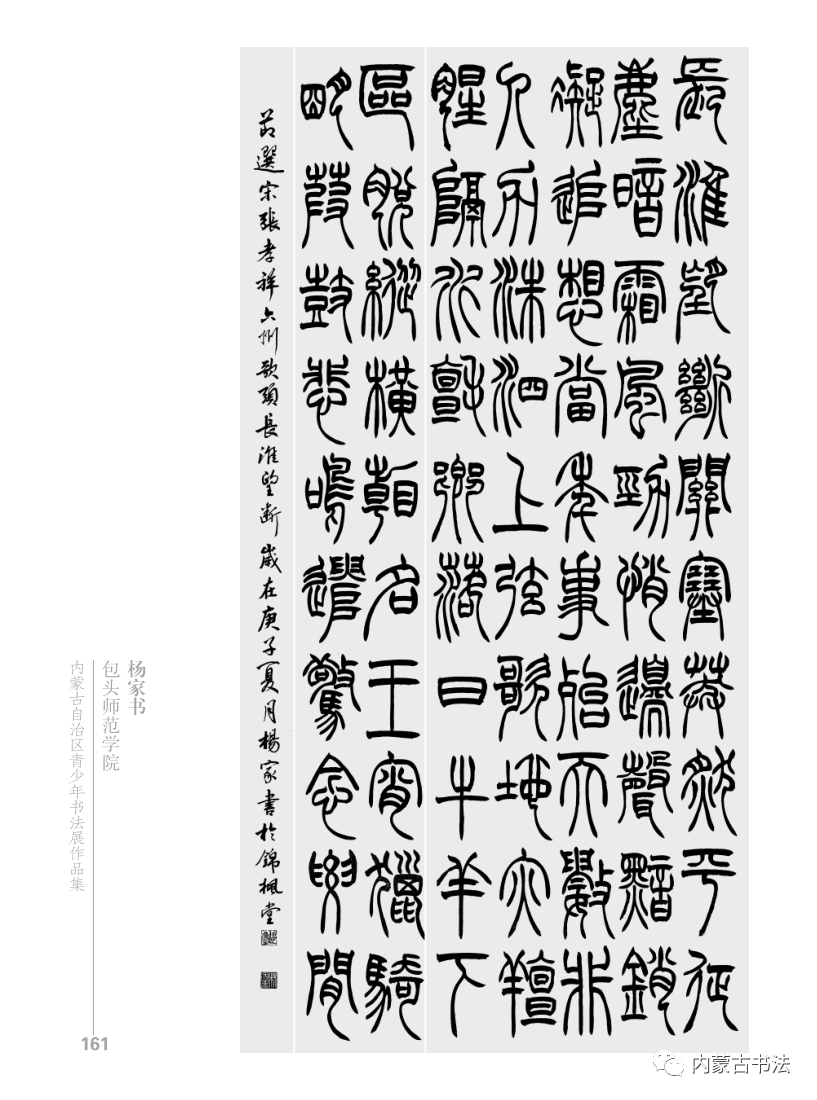 長淮望斷關塞莽然平征
塵暗霜風勁悄邊聲黯銷
凝追想當年事殆天數非
人力洙泗上弦歌地亦羶
腥隔水氈鄉落日牛羊下
區脫縱橫看名王宵獵騎
明葭鼓悲鳴遣驚念腰間
節選宋張孝祥六州歌頭長淮望斷歲在庚子夏月楊家書於錦楓堂
杨家书
包头师范学院
内蒙古自治区青少年书法展作品集
161
内蒙古书法